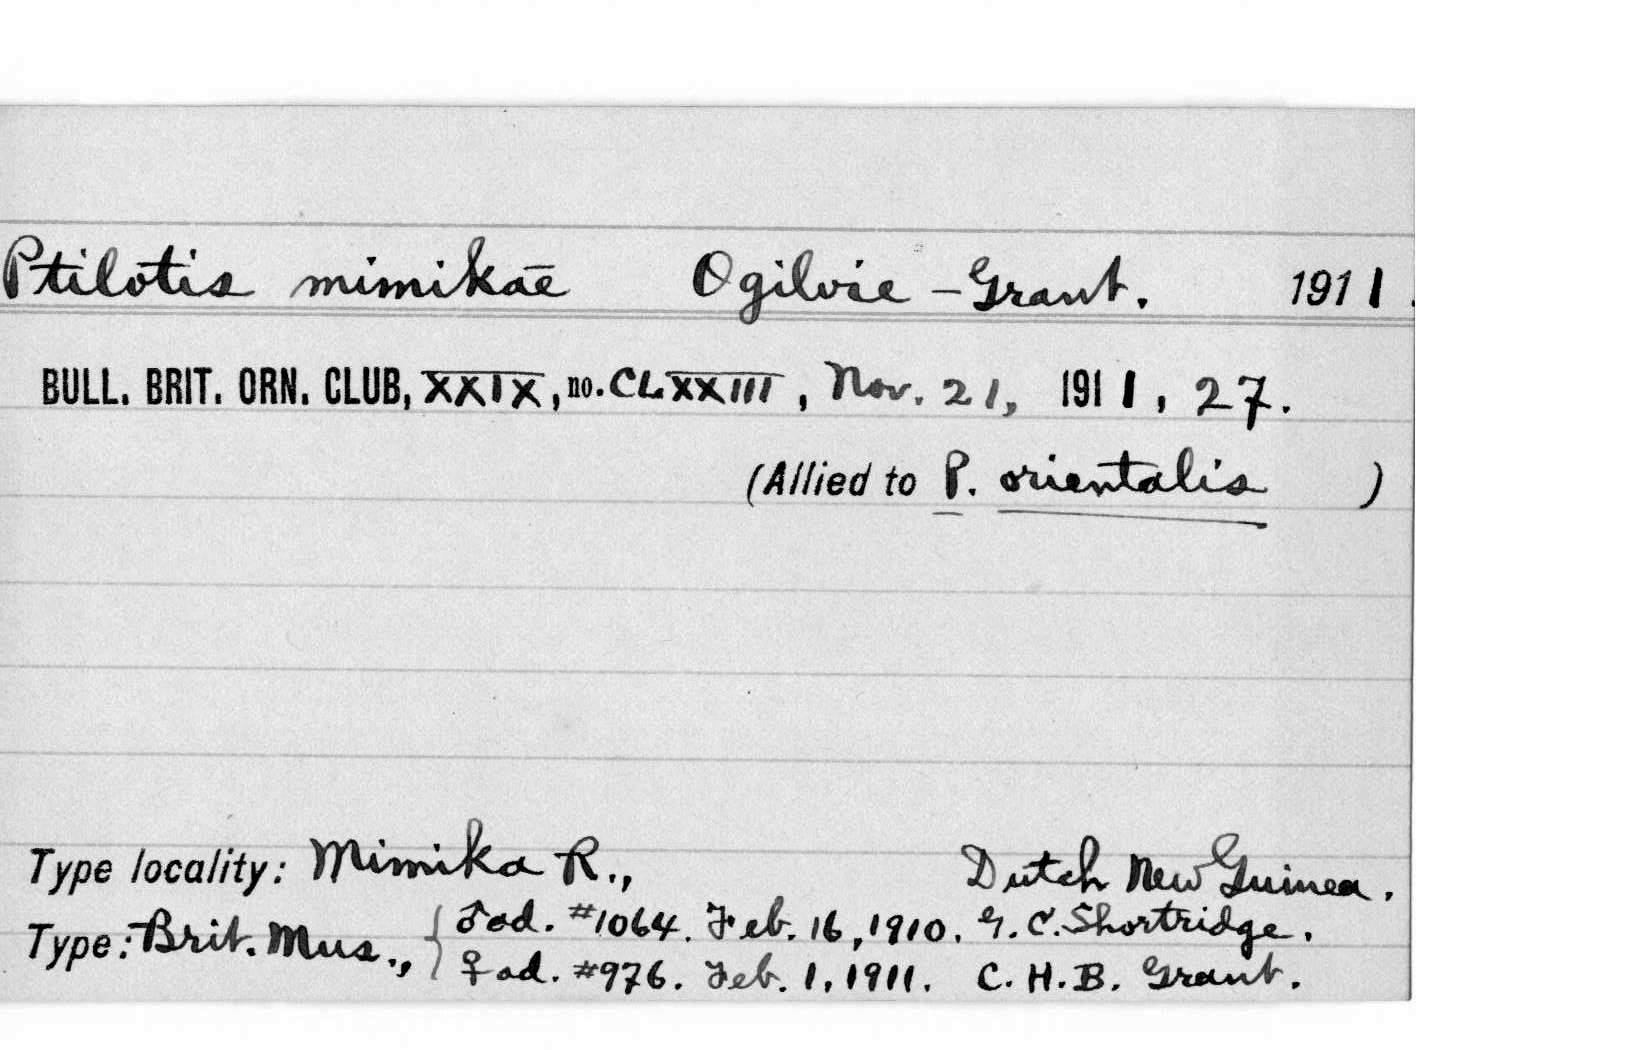 Ptilotis mimikae Ogilvie-Grant. 1911.
BULL. BRIT. ORN. CLUB, XXIX, no. CLXXIII, Nov. 21, 1911, 27.
(Allied to P. orientalis )
Type locality: Mimika R., Dutch New Guinea.
Type: Brit. Mus., { ♂ ad. #1064. Feb. 16, 1910. G. C. Shortridge.
♀ ad. #976. Feb. 1, 1911. C. H. B. Grant.